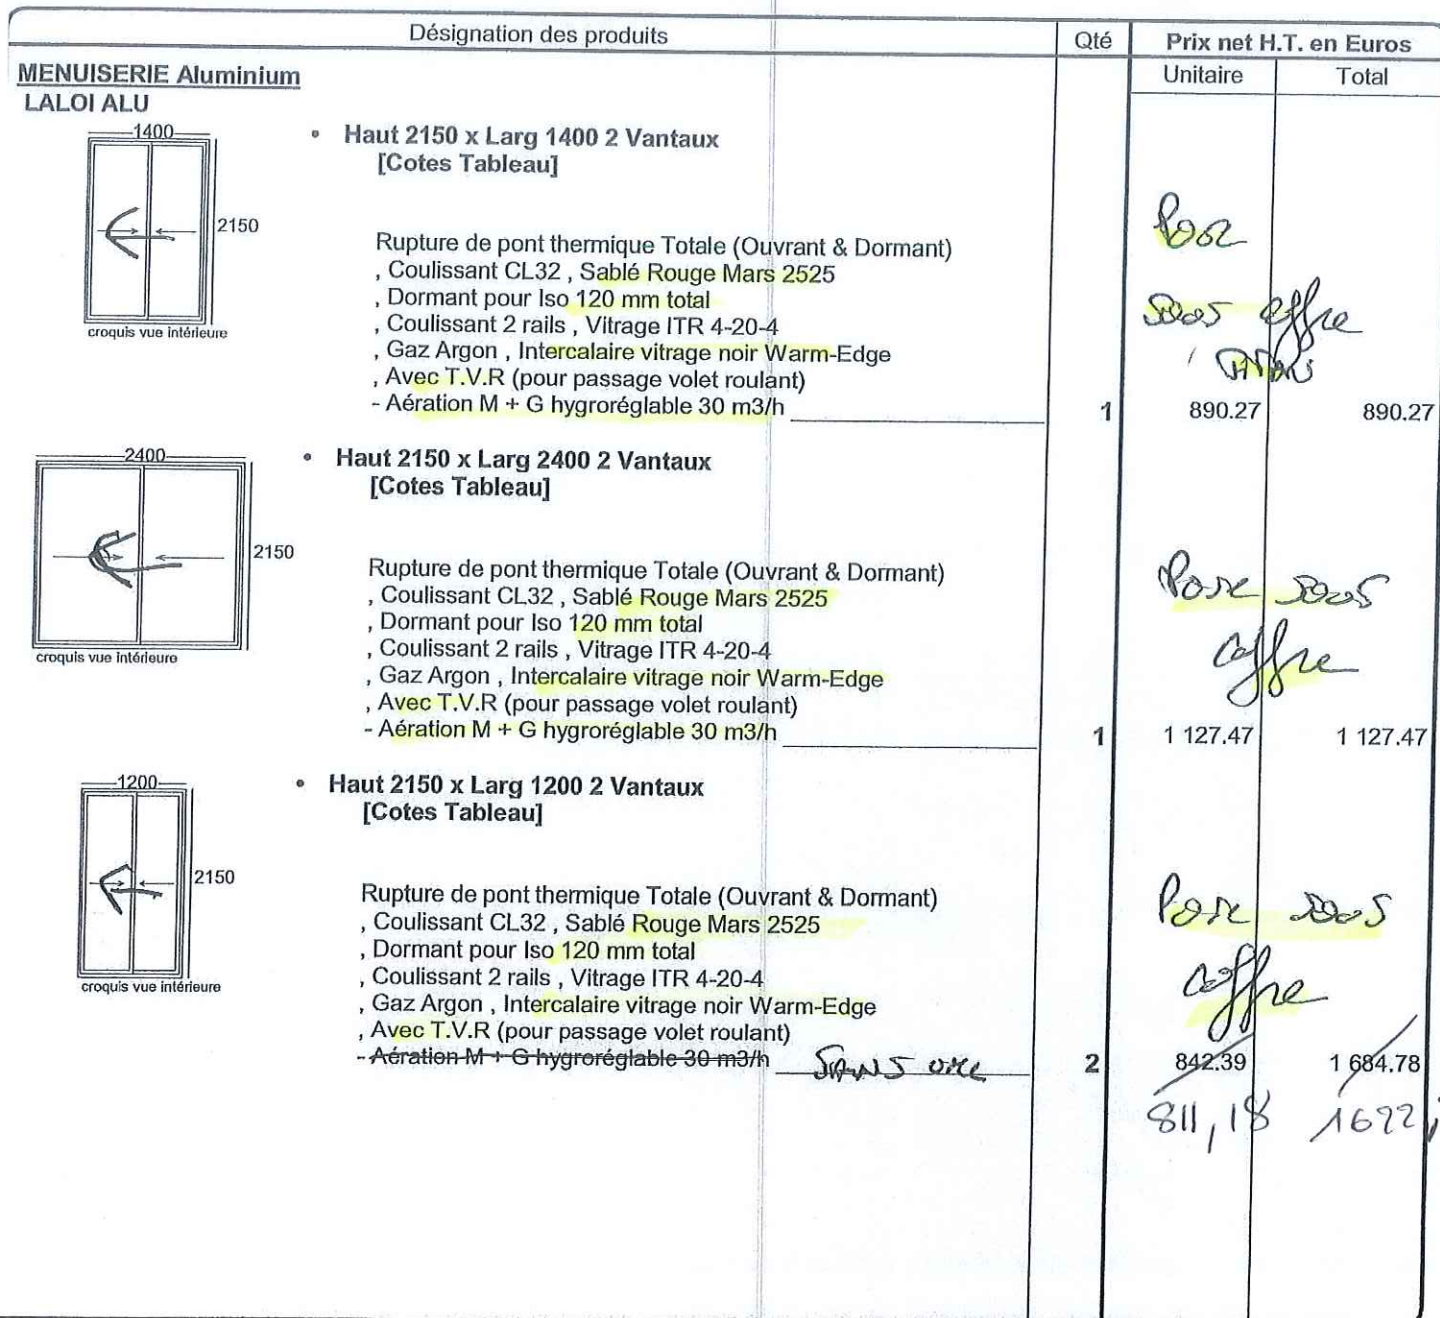 Désignation des produits
Qté
Prix net H.T. en Euros
Unitaire
Total
MENUISERIE Aluminium
LALOI ALU
1400
2150
croquis vue intérieure
• Haut 2150 x Larg 1400 2 Vantaux
[Cotes Tableau]
Rupture de pont thermique Totale (Ouvrant & Dormant)
, Coulissant CL32 , Sablé Rouge Mars 2525
, Dormant pour Iso 120 mm total
, Coulissant 2 rails , Vitrage ITR 4-20-4
, Gaz Argon , Intercalaire vitrage noir Warm-Edge
, Avec T.V.R (pour passage volet roulant)
- Aération M + G hygroréglable 30 m3/h
Pose
sous coffre
1 890.27 890.27
2400
2150
croquis vue intérieure
• Haut 2150 x Larg 2400 2 Vantaux
[Cotes Tableau]
Rupture de pont thermique Totale (Ouvrant & Dormant)
, Coulissant CL32 , Sablé Rouge Mars 2525
, Dormant pour Iso 120 mm total
, Coulissant 2 rails , Vitrage ITR 4-20-4
, Gaz Argon , Intercalaire vitrage noir Warm-Edge
, Avec T.V.R (pour passage volet roulant)
- Aération M + G hygroréglable 30 m3/h
Pose sous
coffre
1 1 127.47 1 127.47
1200
2150
croquis vue intérieure
• Haut 2150 x Larg 1200 2 Vantaux
[Cotes Tableau]
Rupture de pont thermique Totale (Ouvrant & Dormant)
, Coulissant CL32 , Sablé Rouge Mars 2525
, Dormant pour Iso 120 mm total
, Coulissant 2 rails , Vitrage ITR 4-20-4
, Gaz Argon , Intercalaire vitrage noir Warm-Edge
, Avec T.V.R (pour passage volet roulant)
- Aération M + G hygroréglable 30 m3/h SANS
Pose sous
coffre
2 842.39 1 684.78
811,18 1622,